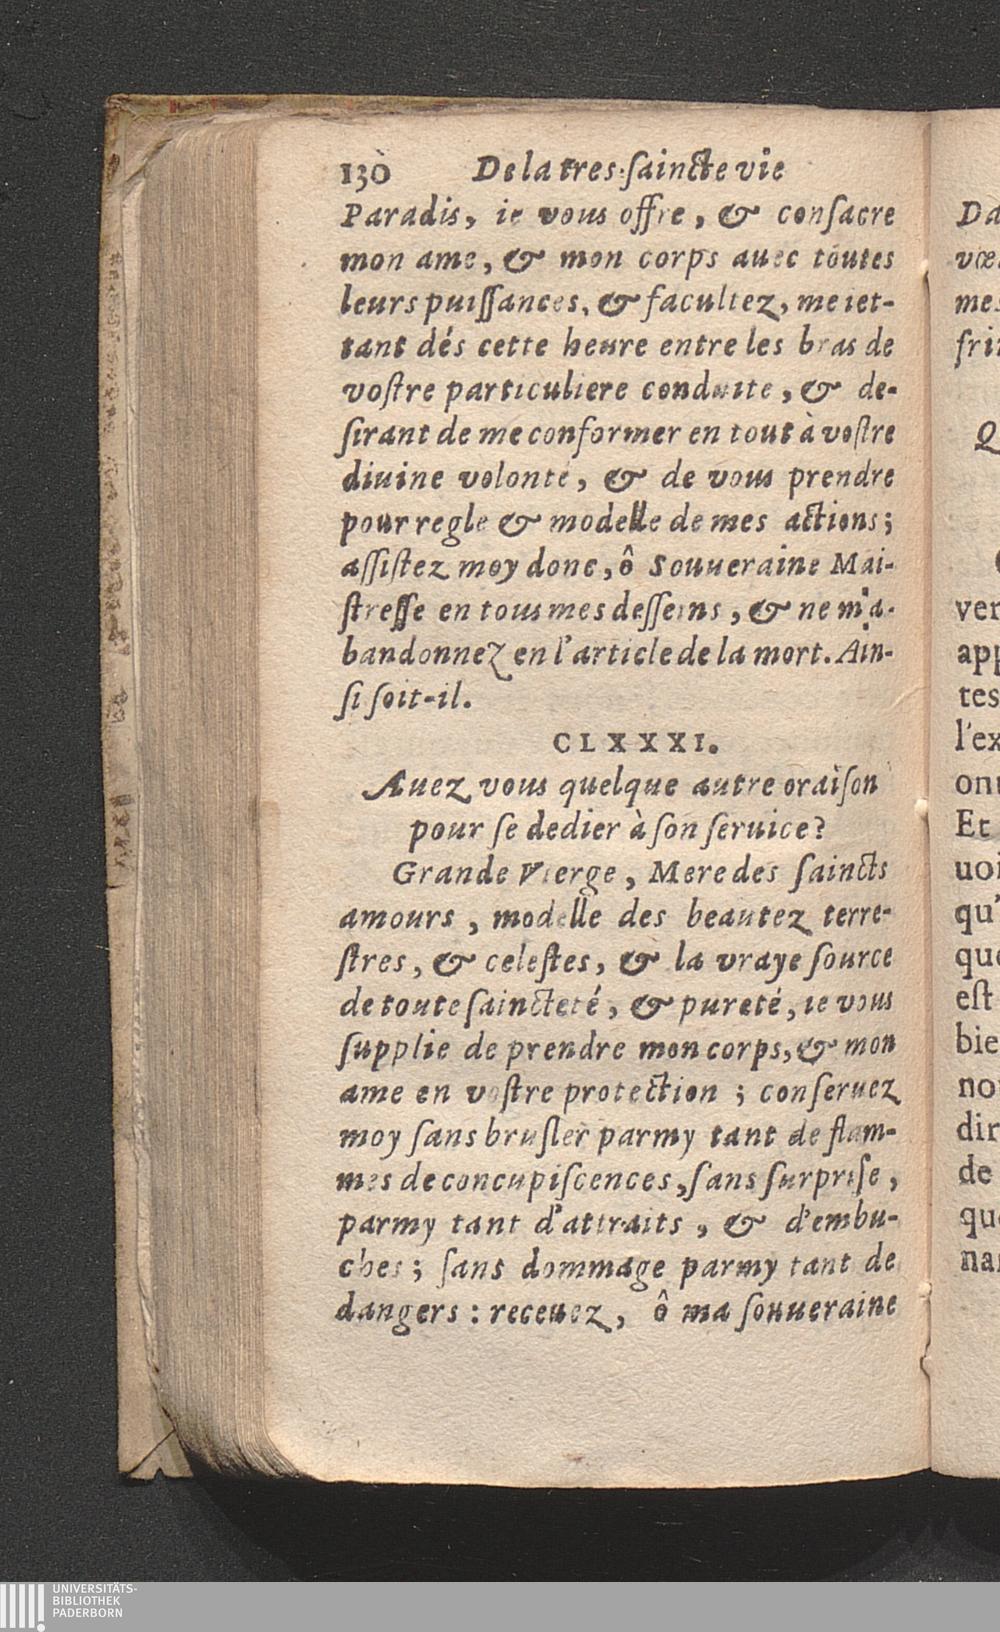 130 De la tres-ſaincte vie
Paradis, ie vous offre, & conſacre
mon ame, & mon corps auec toutes
leurs puiſſances, & facultez, me iet-
tant dés cette heure entre les bras de
voſtre particuliere conduite, & de-
ſirant de me conformer en tout à voſtre
diuine volonté, & de vous prendre
pour regle & modelle de mes actions;
aſſiſtez moy donc, ô Souueraine Mai-
ſtreſſe en tous mes deſſeins, & ne m'a-
bandonnez en l'article de la mort. Ain-
ſi ſoit-il.
CLXXXI.
Auez vous quelque autre oraiſon
pour ſe dedier à ſon ſeruice?
Grande Vierge, Mere des ſaincts
amours, modelle des beautez terre-
ſtres, & celeſtes, & la vraye ſource
de toute ſaincteté, & pureté, ie vous
ſupplie de prendre mon corps, & mon
ame en voſtre protection; conſeruez
moy ſans bruſler parmy tant de flam-
mes de concupiſcences, ſans ſurpriſe,
parmy tant d'attraits, & d'embu-
ches; ſans dommage parmy tant de
dangers: receuez, ô ma ſouueraine
Et
eſt
de
UNIVERSITÄTS-
BIBLIOTHEK
PADERBORN